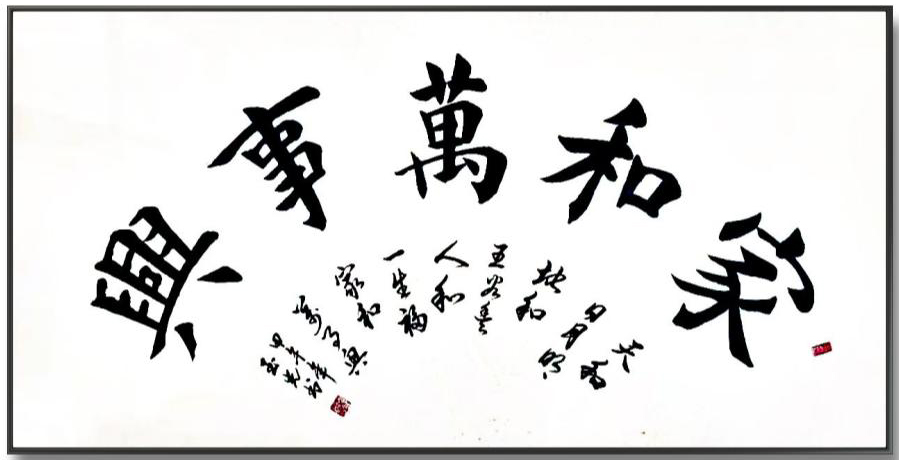 家和萬事興
天和
日月明
地和
五谷豊
人和
一生福
家和
萬事興
甲午年